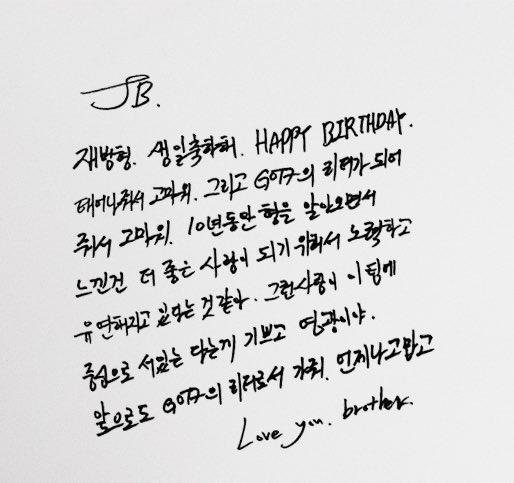 JB.
재범형. 생일축하해. HAPPY BIRTHDAY.
태어나줘서 고마워. 그리고 GOT7의 리더가 되어
줘서 고마워. 10년동안 형을 알아오면서
느낀건 더 좋은 사람이 되기 위해서 노력하고
유연해지고 있다는 것 같아. 그런사람이 이 팀에
중심으로 서있는 다는게 기쁘고 영광이야.
앞으로도 GOT7의 리더로서 가줘. 언제나고맙고
Love you. brother.